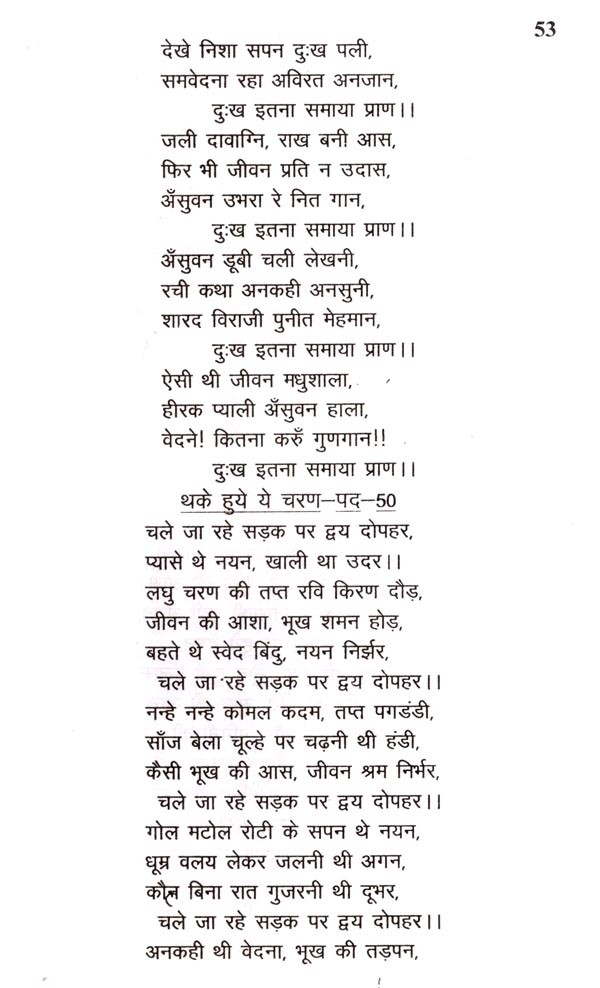 53
देखे निशा सपन दुःख पली,
समवेदना रहा अविरत अनजान,
दुःख इतना समाया प्राण।।
जली दावाग्नि, राख बनी आस,
फिर भी जीवन प्रति न उदास,
अँसुवन उभरा रे नित गान,
दुःख इतना समाया प्राण।।
अँसुवन डूबी चली लेखनी,
रची कथा अनकही अनसुनी,
शारद विराजी पुनीत मेहमान,
दुःख इतना समाया प्राण।।
ऐसी थी जीवन मधुशाला,
हीरक प्याली अँसुवन हाला,
वेदने! कितना करुँ गुणगान!!
दुःख इतना समाया प्राण।।
थके हुये ये चरण–पद–50
चले जा रहे सड़क पर द्वय दोपहर,
प्यासे थे नयन, खाली था उदर।।
लघु चरण की तप्त रवि किरण दौड़,
जीवन की आशा, भूख शमन होड़,
बहते थे स्वेद बिंदु, नयन निर्झर,
चले जा रहे सड़क पर द्वय दोपहर।।
नन्हे नन्हे कोमल कदम, तप्त पगडंडी,
साँज बेला चूल्हे पर चढ़नी थी हंडी,
कैसी भूख की आस, जीवन श्रम निर्भर,
चले जा रहे सड़क पर द्वय दोपहर।।
गोल मटोल रोटी के सपन थे नयन,
धूम्र वलय लेकर जलनी थी अगन,
बिना रात गुजरनी थी दूभर,
चले जा रहे सड़क पर द्वय दोपहर।।
अनकही थी वेदना, भूख की तड़पन,